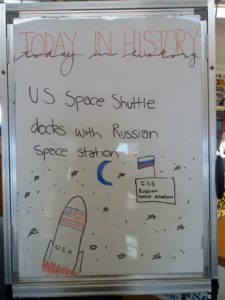 TODAY IN HISTORY
today in history
US Space Shuttle
docks with Russian
space station
ISS
Russian
space station
U.S.A